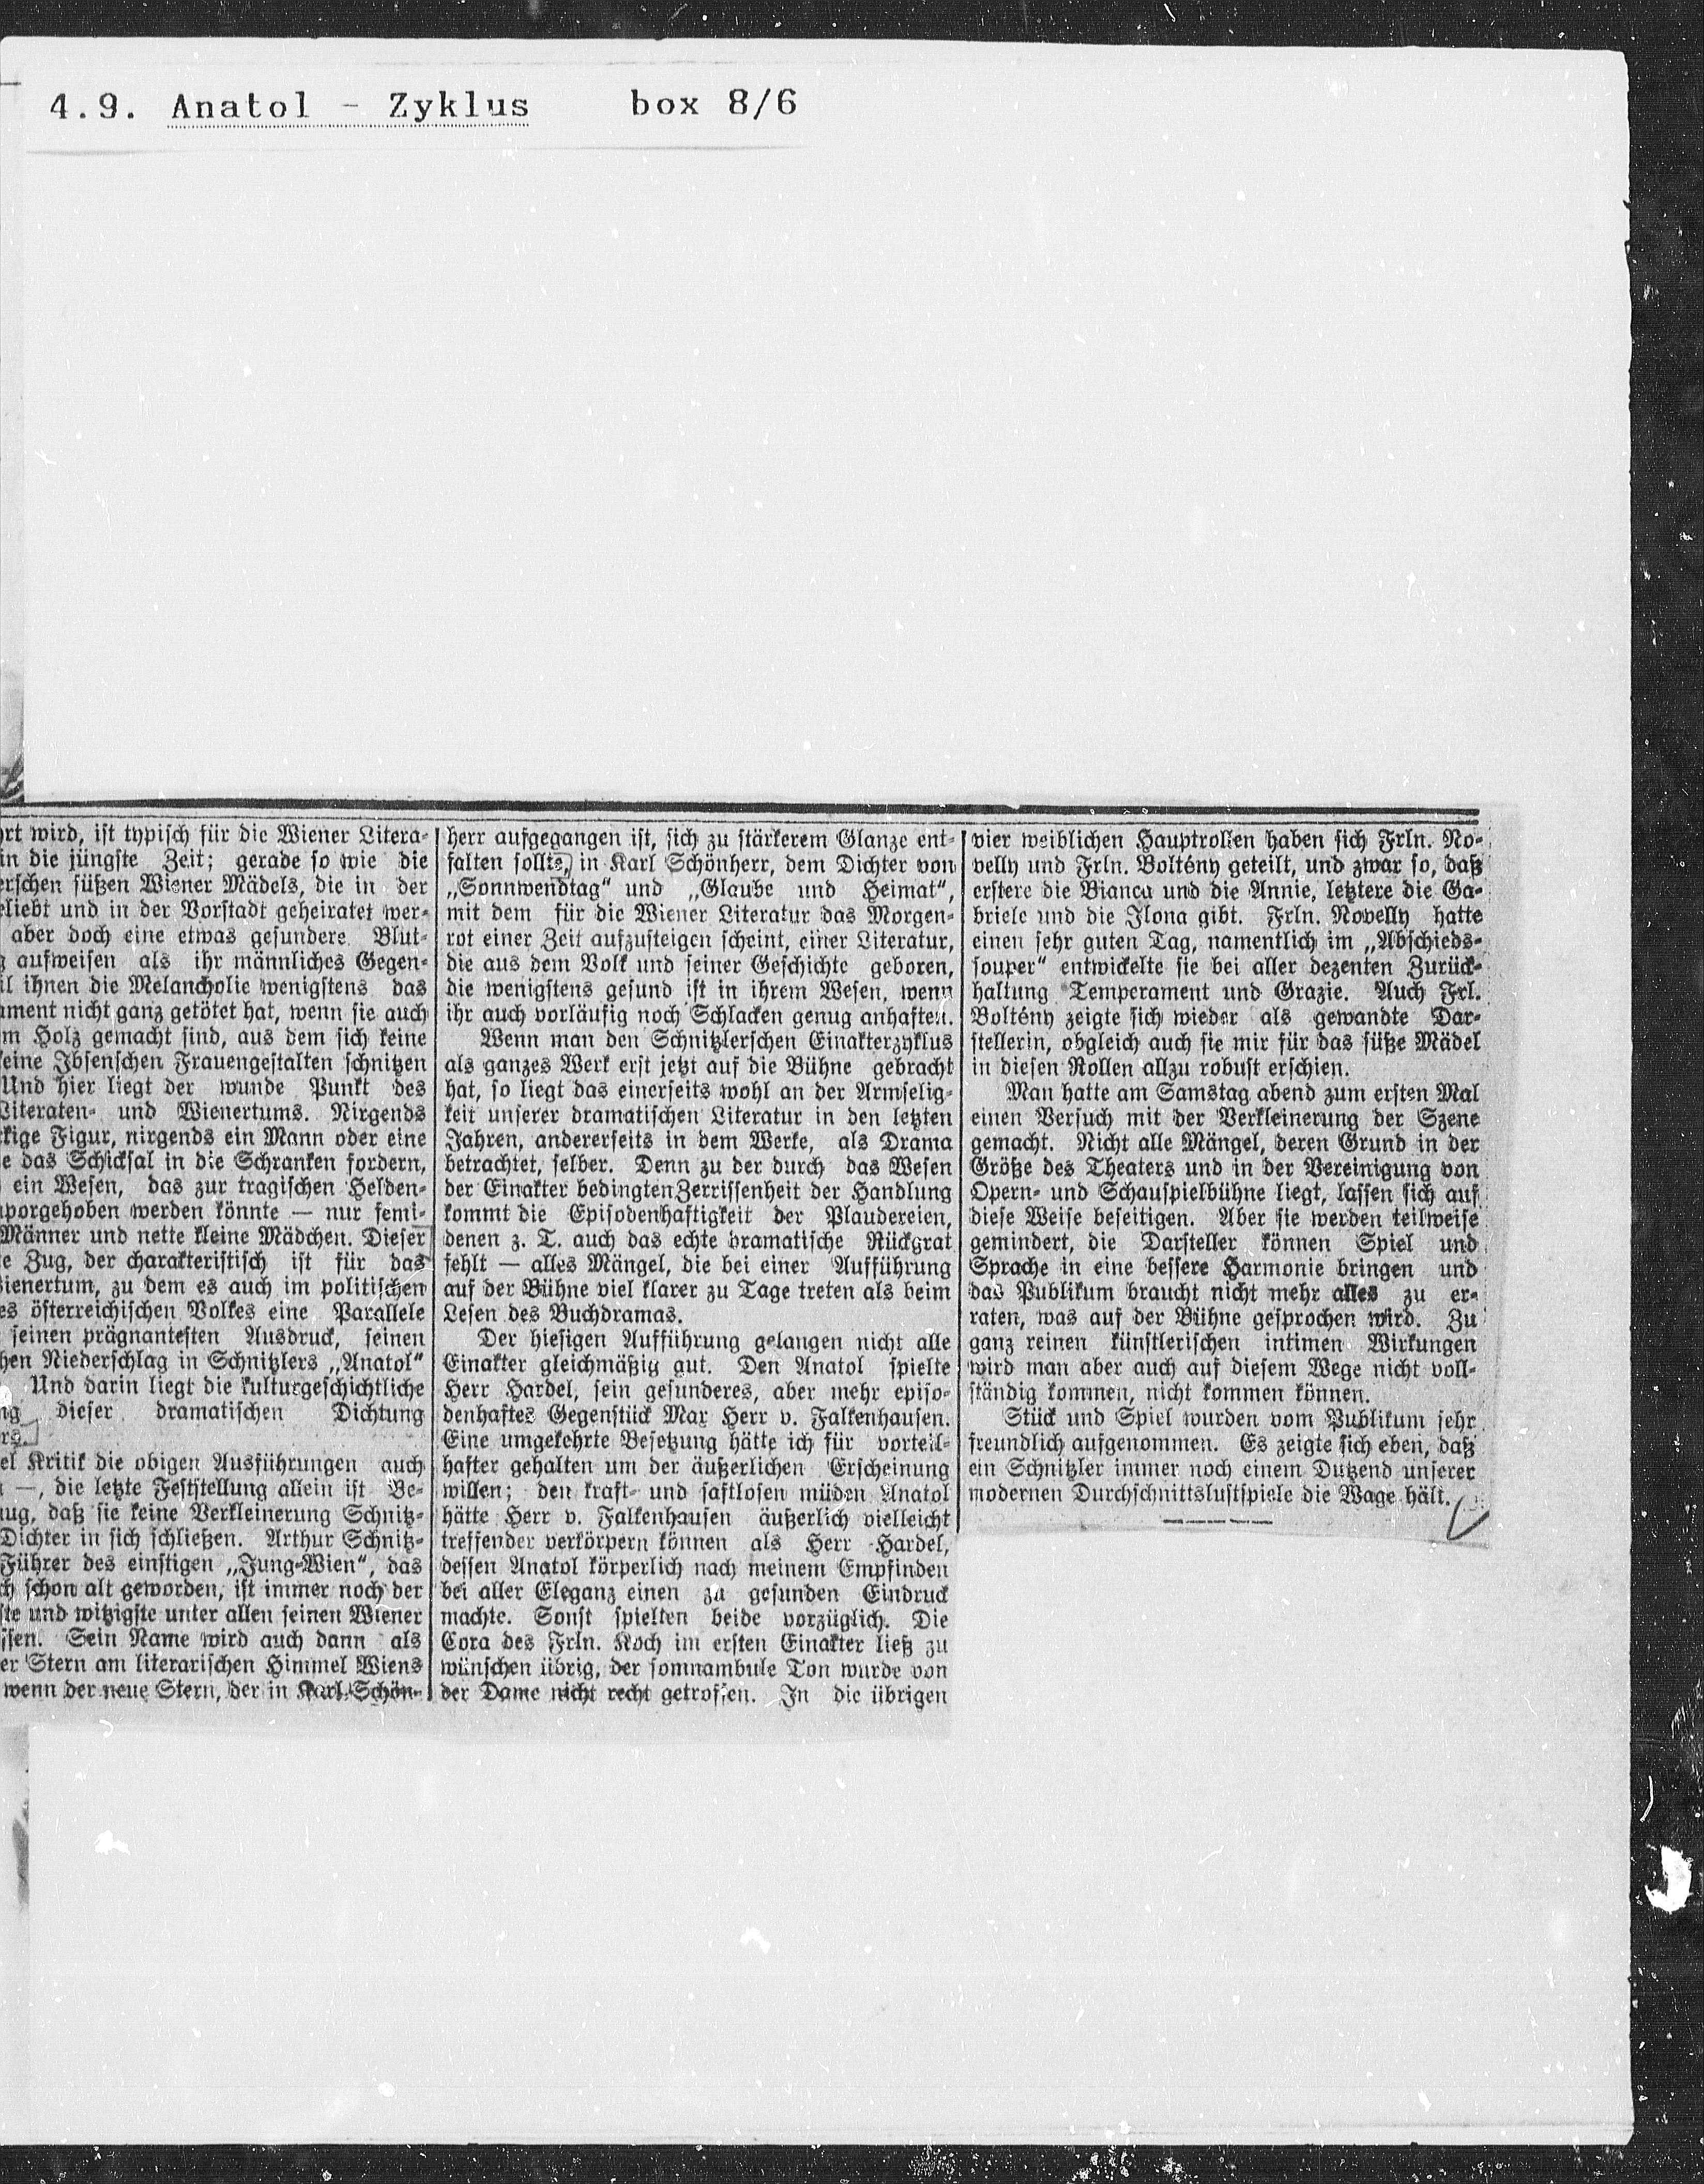 4.9. Anatol - Zyklus box 8/6
wird, ist typisch für die Wiener Litera-
in die jüngste Zeit; gerade so wie die
süßen Wiener Mädels, die in der
und in der Vorstadt geheiratet wer-
aber doch eine etwas gesundere Blut-
aufweisen als ihr männliches Gegen-
ihnen die Melancholie wenigstens das
nicht ganz getötet hat, wenn sie auch
Holz gemacht sind, aus dem sich keine
Ibsenschen Frauengestalten schnitzen
Und hier liegt der wunde Punkt des
Literaten- und Wienertums. Nirgends
Figur, nirgends ein Mann oder eine
das Schicksal in die Schranken fordern,
ein Wesen, das zur tragischen Helden-
werden könnte — nur femi-
Männer und nette kleine Mädchen. Dieser
Zug, der charakteristisch ist für das
zu dem es auch im politischen
österreichischen Volkes eine Parallele
seinen prägnantesten Ausdruck, seinen
Niederschlag in Schnitzlers „Anatol“
Und darin liegt die kulturgeschichtliche
dieser dramatischen Dichtung
Kritik die obigen Ausführungen auch
—, die letzte Feststellung allein ist Be-
daß sie keine Verkleinerung Schnitz-
Dichter in sich schließen. Arthur Schnitz-
Führer des einstigen „Jung-Wien“, das
schon alt geworden, ist immer noch der
und witzigste unter allen seinen Wiener
Sein Name wird auch dann als
Stern am literarischen Himmel Wiens
wenn der neue Stern, der in Karl Schön-
herr aufgegangen ist, sich zu stärkerem Glanze ent-
falten sollte, in Karl Schönherr, dem Dichter von
„Sonnwendtag“ und „Glaube und Heimat“,
mit dem für die Wiener Literatur das Morgen-
rot einer Zeit aufzusteigen scheint, einer Literatur,
die aus dem Volk und seiner Geschichte geboren,
die wenigstens gesund ist in ihrem Wesen, wenn
ihr auch vorläufig noch Schlacken genug anhaften.
Wenn man den Schnitzlerschen Einakterzyklus
als ganzes Werk erst jetzt auf die Bühne gebracht
hat, so liegt das einerseits wohl an der Armselig-
keit unserer dramatischen Literatur in den letzten
Jahren, andererseits in dem Werke, als Drama
betrachtet, selber. Denn zu der durch das Wesen
der Einakter bedingten Zerrissenheit der Handlung
kommt die Episodenhaftigkeit der Plaudereien,
denen z. T. auch das echte dramatische Rückgrat
fehlt — alles Mängel, die bei einer Aufführung
auf der Bühne viel klarer zu Tage treten als beim
Lesen des Buchdramas.
Der hiesigen Aufführung gelangen nicht alle
Einakter gleichmäßig gut. Den Anatol spielte
Herr Hardel, sein gesunderes, aber mehr episo-
denhaftes Gegenstück Max Herr v. Falkenhausen.
Eine umgekehrte Besetzung hätte ich für vorteil-
hafter gehalten um der äußerlichen Erscheinung
willen; den kraft- und saftlosen müden Anatol
hätte Herr v. Falkenhausen äußerlich vielleicht
treffender verkörpern können als Herr Hardel,
dessen Anatol körperlich nach meinem Empfinden
bei aller Eleganz einen zu gesunden Eindruck
machte. Sonst spielten beide vorzüglich. Die
Cora des Frln. Koch im ersten Einakter ließ zu
wünschen übrig, der somnambule Ton wurde von
der Dame nicht recht getroffen. In die übrigen
vier weiblichen Hauptrollen haben sich Frln. No-
velly und Frln. Boltény geteilt, und zwar so, daß
erstere die Bianca und die Annie, letztere die Ga-
briele und die Ilona gibt. Frln. Novelly hatte
einen sehr guten Tag, namentlich im „Abschieds-
souper“ entwickelte sie bei aller dezenten Zurück-
haltung Temperament und Grazie. Auch Frl.
Boltény zeigte sich wieder als gewandte Dar-
stellerin, obgleich auch sie mir für das süße Mädel
in diesen Rollen allzu robust erschien.
Man hatte am Samstag abend zum ersten Mal
einen Versuch mit der Verkleinerung der Szene
gemacht. Nicht alle Mängel, deren Grund in der
Größe des Theaters und in der Vereinigung von
Opern- und Schauspielbühne liegt, lassen sich auf
diese Weise beseitigen. Aber sie werden teilweise
gemindert, die Darsteller können Spiel und
Sprache in eine bessere Harmonie bringen und
das Publikum braucht nicht mehr alles zu er-
raten, was auf der Bühne gesprochen wird. Zu
ganz reinen künstlerischen intimen Wirkungen
wird man aber auch auf diesem Wege nicht voll-
ständig kommen, nicht kommen können.
Stück und Spiel wurden vom Publikum sehr
freundlich aufgenommen. Es zeigte sich eben, daß
ein Schnitzler immer noch einem Dutzend unserer
modernen Durchschnittslustspiele die Wage hält.